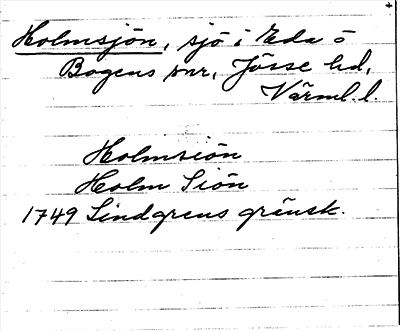 Holmsjön, sjö i Eda o
Bogens snr, Jösse hd,
Värml. l.
Holmsiön
Holm Siön
1749 Lindgrens gränsk.